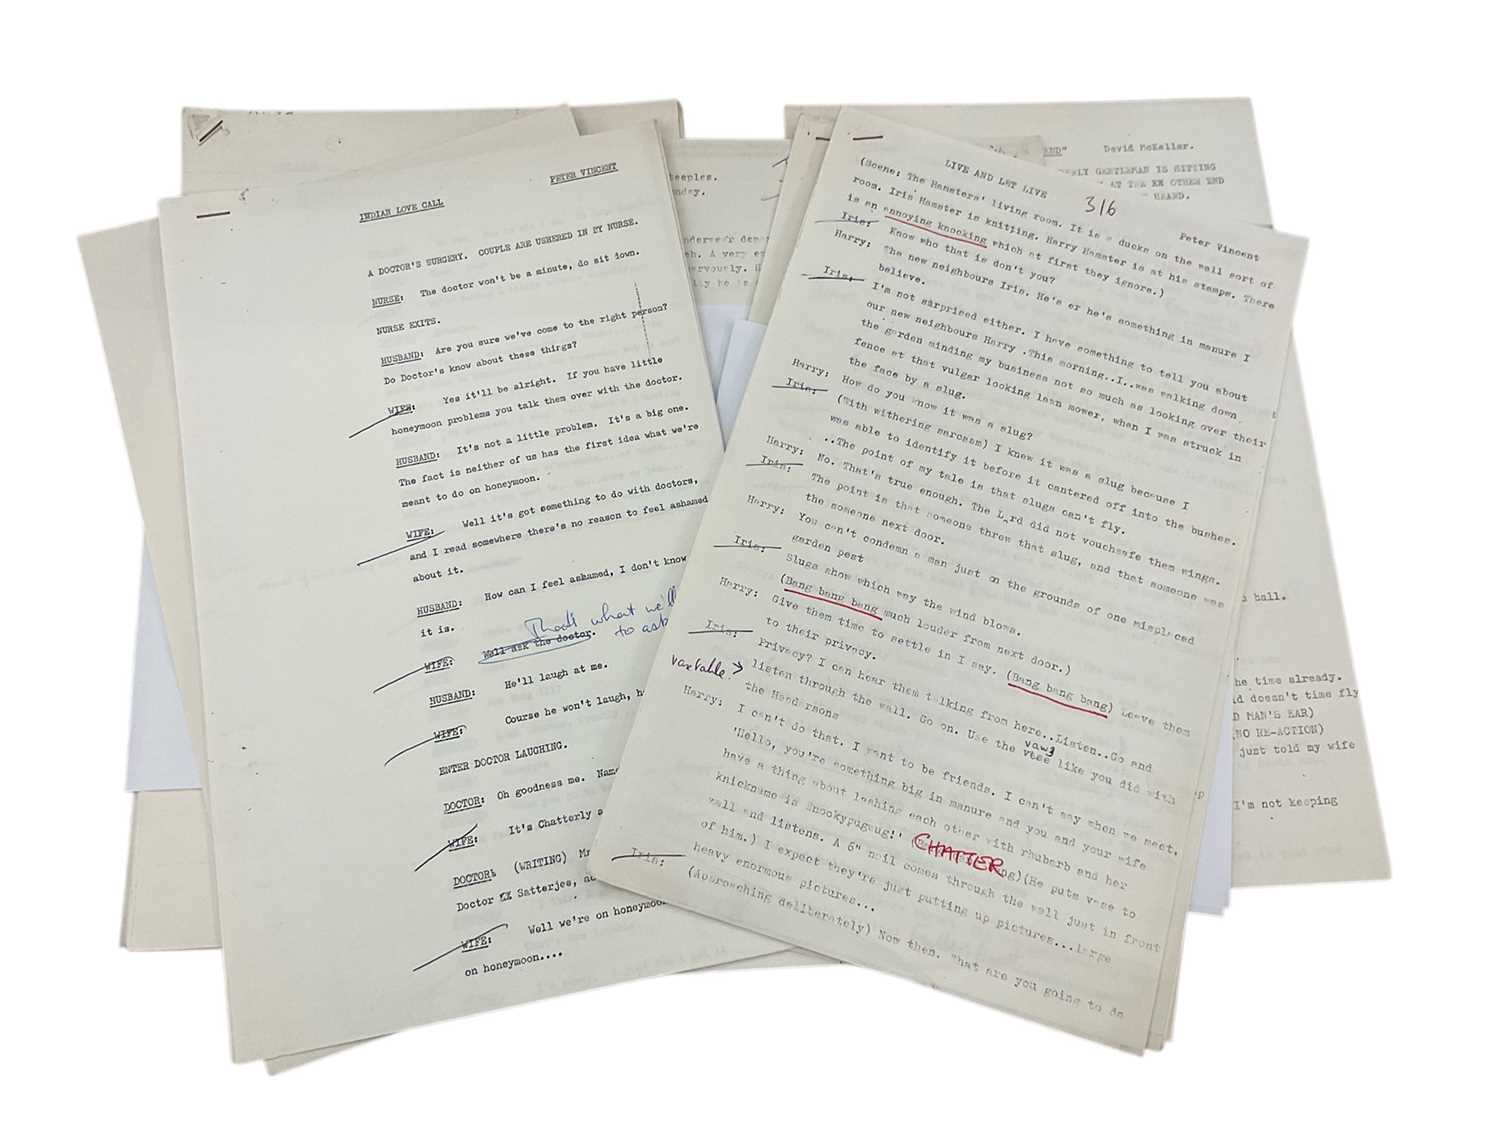 PETER VINCENT
INDIAN LOVE CALL
A DOCTOR'S SURGERY. COUPLE ARE USHERED IN BY NURSE.
NURSE: The doctor won't be a minute, do sit down.
NURSE EXITS.
HUSBAND: Are you sure we've come to the right person?
Do Doctor's know about these things?
WIFE: Yes it'll be alright. If you have little
honeymoon problems you talk them over with the doctor.
HUSBAND: It's not a little problem. It's a big one.
The fact is neither of us has the first idea what we're
meant to do on honeymoon.
WIFE: Well it's got something to do with doctors,
and I read somewhere there's no reason to feel ashamed
about it.
HUSBAND: How can I feel ashamed, I don't know
it is.
That's what we'll
WIFE: We'll ask the doctor. to ask
HUSBAND: He'll laugh at me.
WIFE: Course he won't laugh, h
ENTER DOCTOR LAUGHING.
DOCTOR: Oh goodness me. Name
WIFE: It's Chatterly
DOCTOR: (WRITING)
Doctor Satterjee,
WIFE: Well we're on honeymoon
on honeymoon....
LIVE AND LET LIVE
316
Peter Vincent
(Scene: The Hamsters' living room. It is a ducks on the wall sort of
room. Iris Hamster is knitting. Harry Hamster is at his stamps. There
is an annoying knocking which at first they ignore.)
Iris: Know who that is don't you?
Harry: The new neighbours Iris. He's er he's something in manure I
believe.
Iris: I'm not surprised either. I have something to tell you about
our new neighbours Harry .This morning..I..was walking down
the garden minding my business not so much as looking over their
fence at that vulgar looking lawn mower, when I was struck in
the face by a slug.
Harry: How do you know it was a slug?
Iris: (With withering sarcasm) I knew it was a slug because I
was able to identify it before it cantered off into the bushes.
..The point of my tale is that slugs can't fly.
Harry: No. That's true enough. The Lord did not vouchsafe them wings.
Iris: The point is that someone threw that slug, and that someone was
the someone next door.
Harry: You can't condemn a man just on the grounds of one misplaced
garden pest
Iris: Slugs show which way the wind blows.
(Bang bang bang much louder from next door.)
Harry: Give them time to settle in I say. (Bang bang bang) Leave them
to their privacy.
Iris: Privacy? I can hear them talking from here..Listen..Go and
listen through the wall. Go on. Use the vase like you did with
the Hendersons
Harry: I can't do that. I want to be friends. I can't say when we meet.
'Hello, you're something big in manure and you and your wife
have a thing about lashing each other with rhubarb and her
knickname is Snookypugwug!' CHATTER (He puts vase to
wall and listens. A 6" nail comes through the wall just in front
of him.) I expect they're just putting up pictures...large
heavy enormous pictures...
Iris: (Approaching deliberately) Now then. What are you going to do
David McKellar.
GENTLEMAN IS SITTING
AT THE OTHER END
HEARD.
steeples.
ball.
the time already.
doesn't time fly
MAN'S EAR)
NO RE-ACTION)
just told my wife
I'm not keeping